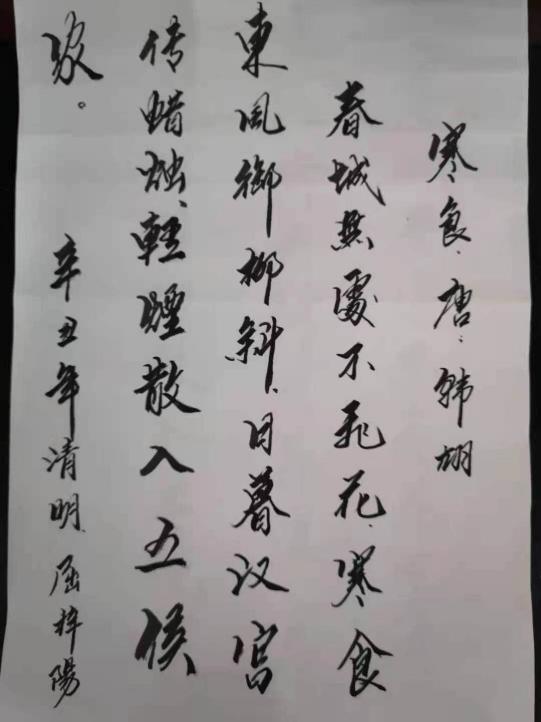 寒食.唐.韩翃
春城無處不飛花.寒食
東風御柳斜.日暮汉宫
传蜡烛.輕煙散入五侯
家。
辛丑年清明.屈梓陽